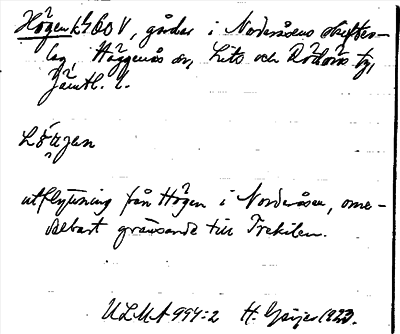 Högen 1/4 Ö o V, gårdar i Norderåsens skifteslag, Häggenås sn, Lits och Rödöns tg,
Jämtl. l.
Högen
utflyttning från Högen i Norderåsen, omedelbart gränsande till Trekilen.
ULMA 994:2 H. Geijer 1923.